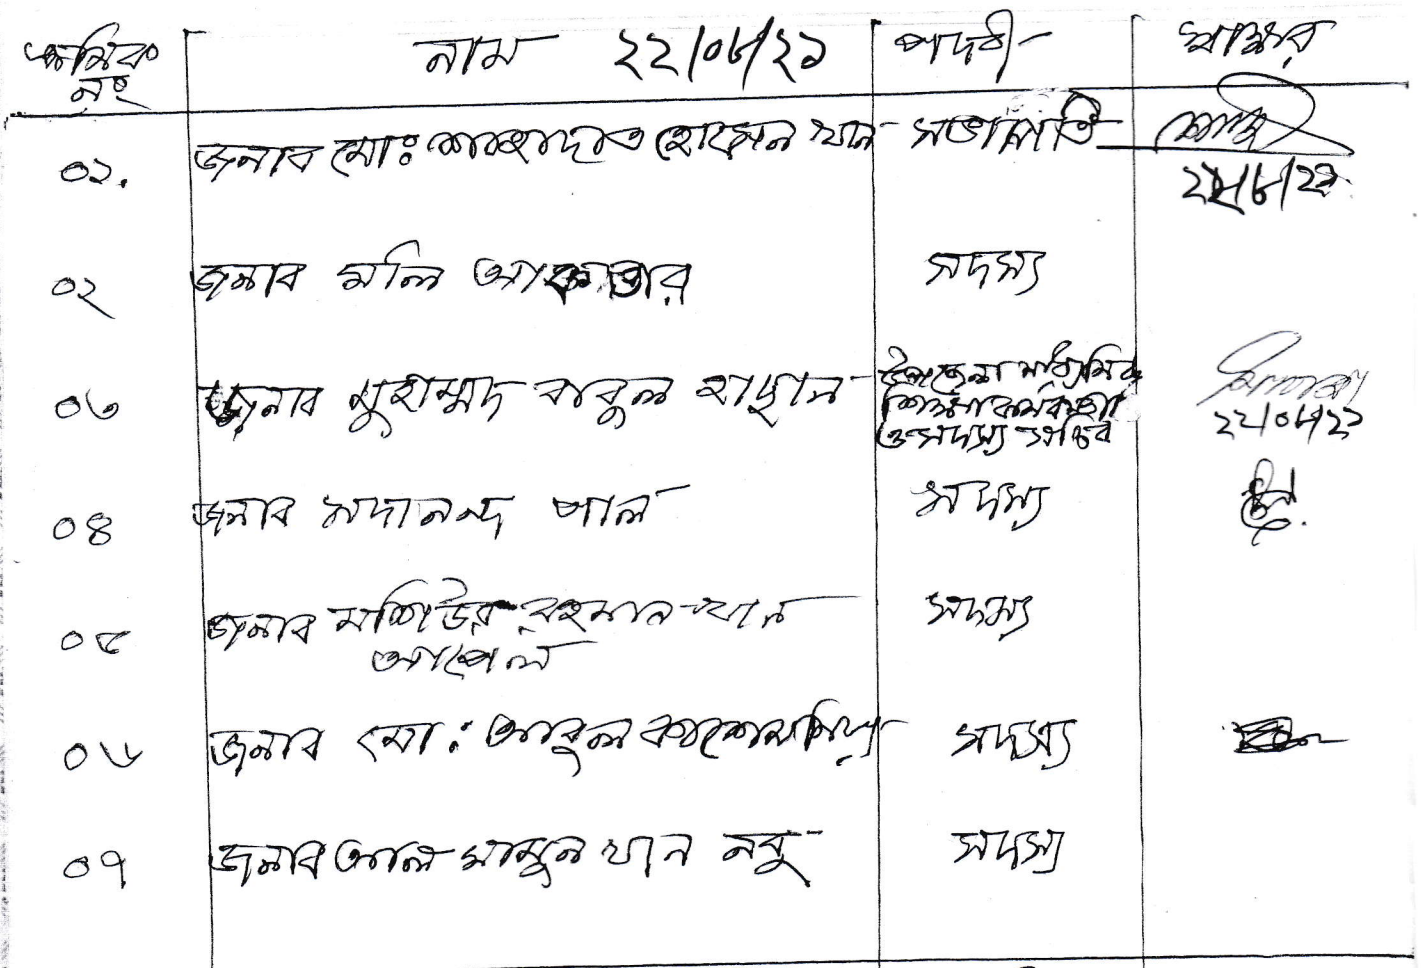 ক্রমিক নাম ২২/০৮/২১ পদবী স্বাক্ষর
নং
০১. জনাব মোঃ শাহাদাত হোসেন খান সভাপতি
২২/৮/২১
০২ জনাব মলি আক্তার সদস্য
০৩ জনাব মুহাম্মদ বাবুল হাছান উপজেলা মাধ্যমিক
শিক্ষা কর্মকর্তা ২২/০৮/২১
ও সদস্য সচিব
০৪ জনাব সদানন্দ পাল সদস্য
০৫ জনাব মশিউর রহমান খান সদস্য
আপেল
০৬ জনাব মো: আবুল কাশেম মিয়া সদস্য
০৭ জনাব আল মামুন খান নবু সদস্য